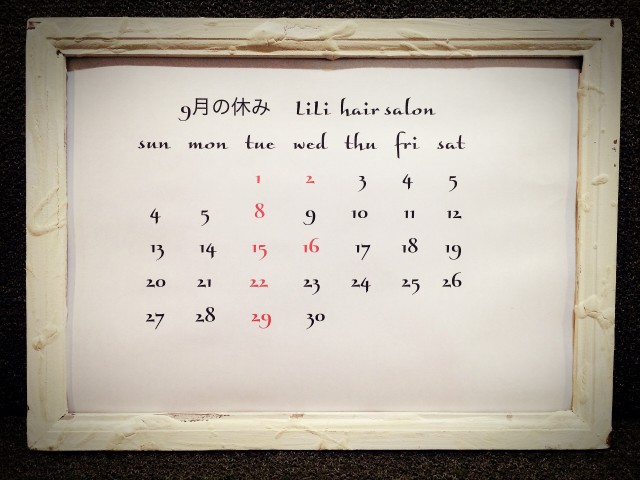 9月の休み LiLi hair salon
sun mon tue wed thu fri sat
1 2 3 4 5
4 5 8 9 10 11 12
13 14 15 16 17 18 19
20 21 22 23 24 25 26
27 28 29 30